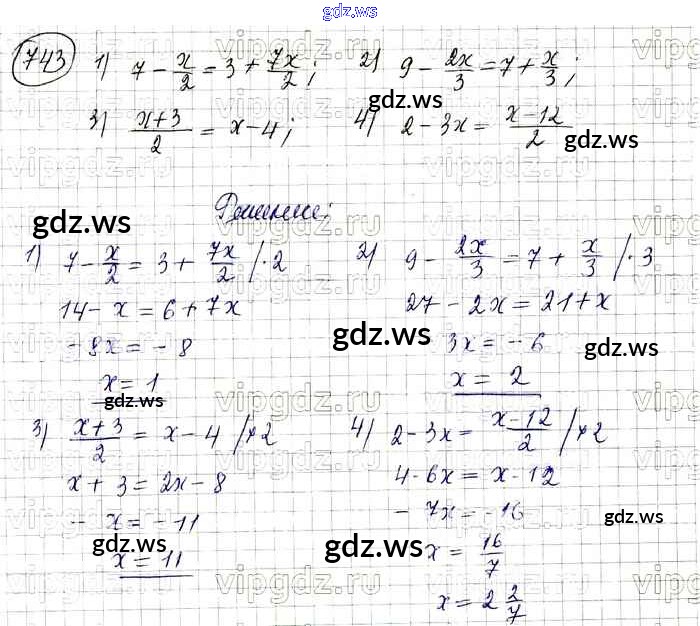 gdz.ws
743 1) 7 - x/2 = 3 + 7x/2; 2) 9 - 2x/3 = 7 + x/3;
gdz.ws
3) x+3/2 = x-4; 4) 2-3x = x-12/2
gdz.ws
Решение:
gdz.ws
1) 7 - x/2 = 3 + 7x/2 /·2
14 - x = 6 + 7x
-8x = -8
x = 1
gdz.ws
2) 9 - 2x/3 = 7 + x/3 /·3
27 - 2x = 21 + x
gdz.ws
3x = -6
gdz.ws
x = 2
3) x+3/2 = x-4 /×2
x + 3 = 2x - 8
- x = -11
gdz.ws
x = 11
4) 2-3x = x-12/2 /×2
4-6x = x-12
-7x = -16
gdz.ws
gdz.ws
x = 16/7
x = 2 2/7
vipgdz.ru